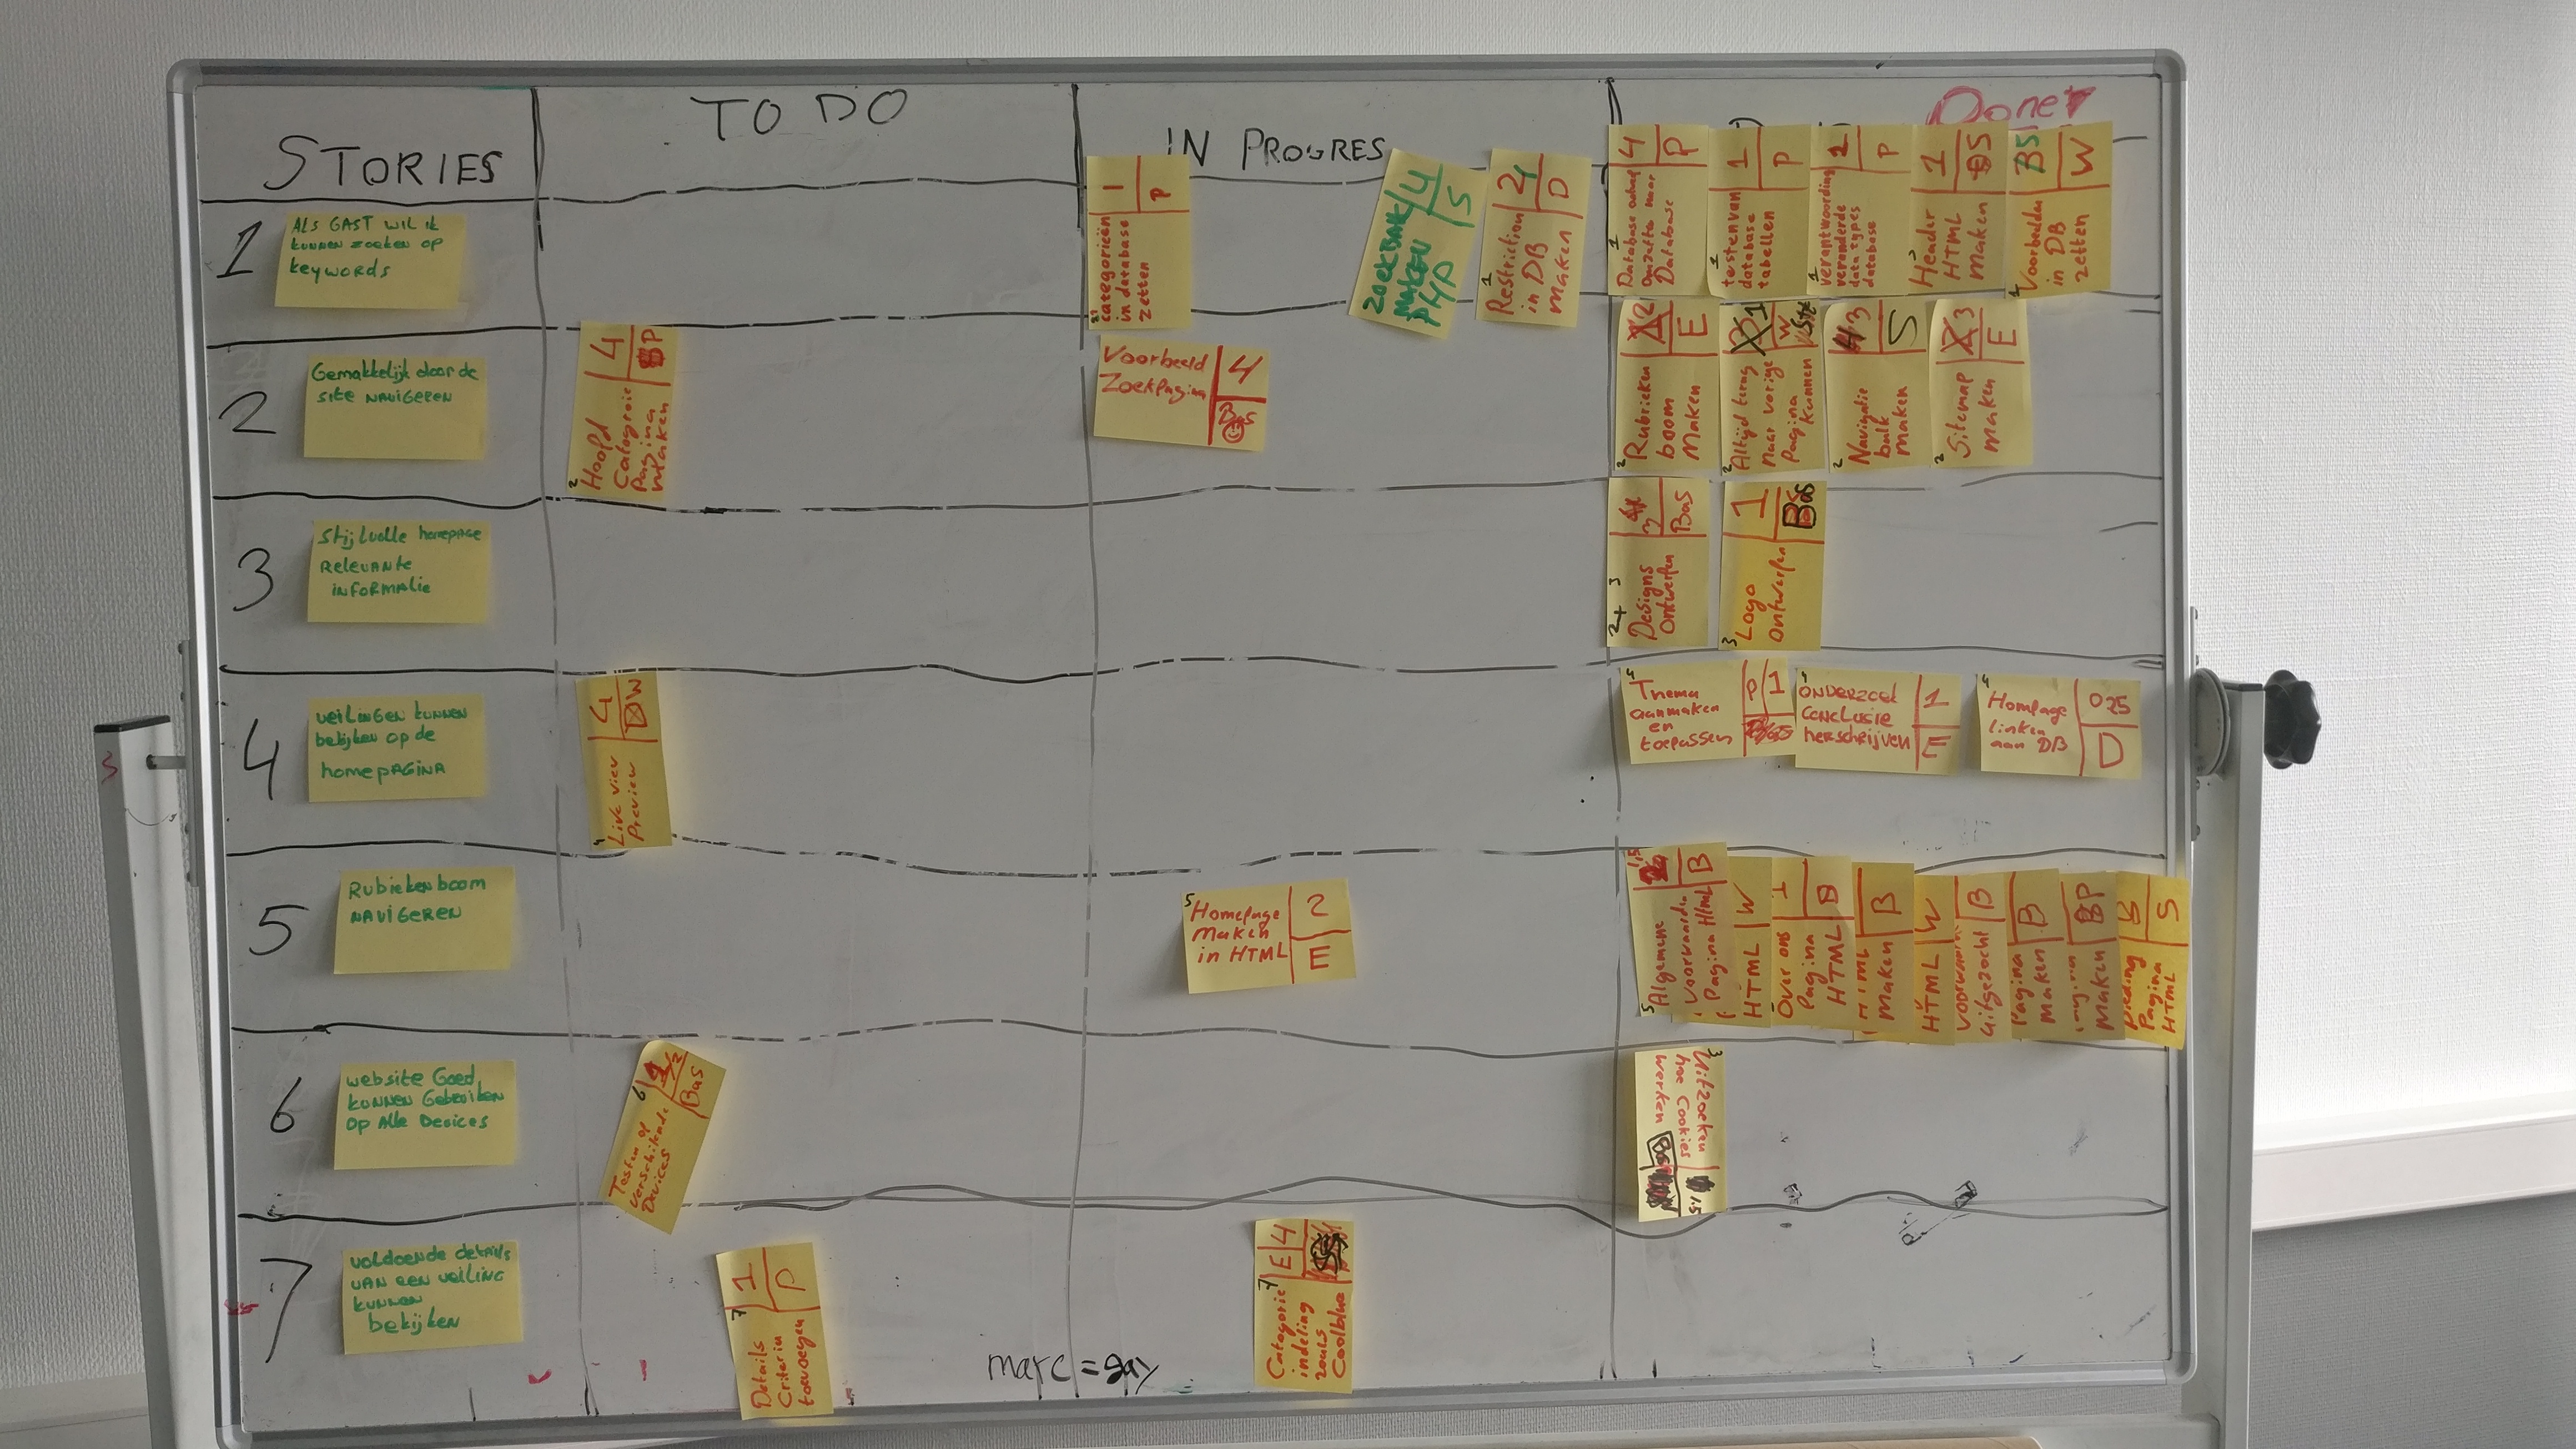 STORIES
TO DO
IN PROGRES
Done
1
ALS GAST WIL ik
kunnen zoeken op
keywords
1
P
categorieën
in database
zetten
4
S
zoekbalk
maken
PHP
D
1
Restrictions
in DB
maken
4
P
1
Database
Database
1
P
1
testen van
database
tabellen
P
1
verantwoording
veranderde
data types
database
1
BS
Header
HTML
maken
BS
W
1
Voorbeelden
in DB
zetten
2
Gemakkelijk door de
site NAVIGEREN
4
P
2
Hoofd
Categroie
Pagina
Maken
Voorbeeld
Zoekpagina
4
Bas
2
E
2
Rubrieken
boom
Maken
1
W
2
Altijd terug
naar vorige
Pagina
kunnen
3
S
2
Navigatie
balk
maken
3
E
2
Sitemap
maken
3
Stijlvolle homepage
Relevante
informatie
3
Bas
2+3
Designs
Ontwerfen
1
Bas
3
Logo
ontwerfen
4
veilingen kunnen
bekijken op de
homepagina
4
W
4
Live view
Preview
4
Thema
aanmaken
en
toepassen
P 1
4
ONDERZOEK
CONCLUSIE
herschrijven
1
E
4
Homepage
linken
aan DB
025
D
5
Rubiekenboom
NAVIGEREN
5
Homepage
Maken
in HTML
2
E
1,5
B
5
Algemene
voorwaarden
Pagina Html
W
HTML
1
B
Over ons
Pagina
HTML
B
HTML
Maken
W
HTML
B
uitgezocht
B
Pagina
Maken
BP
Maken
S
Bieding
Pagina
HTML
6
website Goed
kunnen Gebruiken
Op Alle Devices
1/2
Bas
6
Testen of
verschillende
Devices
3
Uitzoeken
hoe Cookies
werken
Bas
1.5
7
voldoende details
van een veiling
kunnen
bekijken
1
P
7
Details
Criteria
toevoegen
E 4
7
Categorie
indeling
zoals
Coolblue
marc = gay